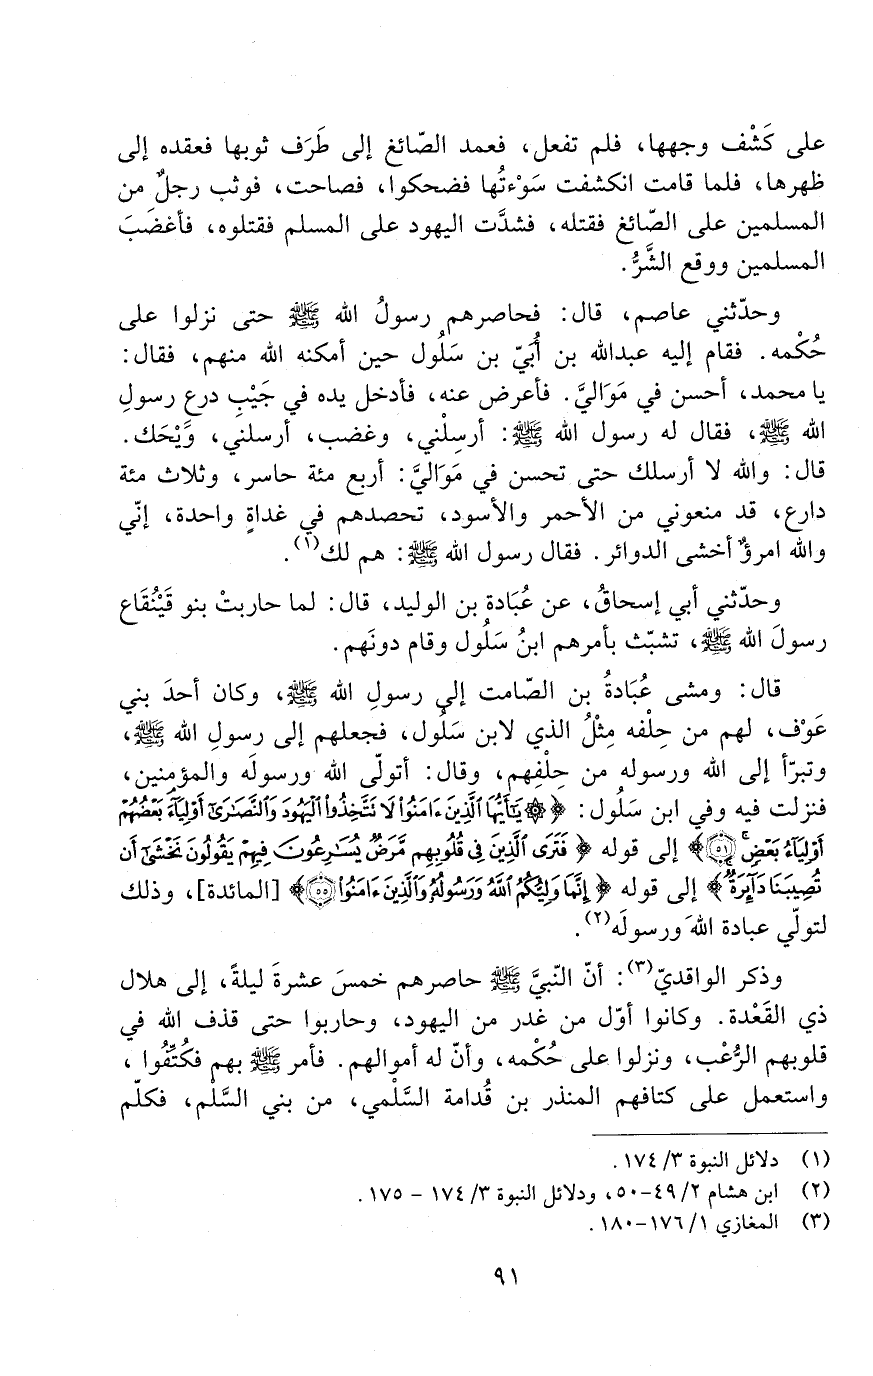 على كَشْف وجهها، فلم تفعل، فعمد الصّائغ إلى طَرَف ثوبها فعقده إلى
ظهرها، فلما قامت انكشفت سَوْءتُها فضحكوا، فصاحت، فوثب رجلٌ من
المسلمين على الصّائغ فقتله، فشدَّت اليهود على المسلم فقتلوه، فأغضَبَ
المسلمين ووقع الشَّرُّ.
وحدّثني عاصم، قال: فحاصرهم رسولُ الله ﷺ حتى نزلوا على
حُكْمه. فقام إليه عبدالله بن أُبَيّ بن سَلُول حين أمكنه الله منهم، فقال:
يا محمد، أحسن في مَوَاليَّ. فأعرض عنه، فأدخل يده في جَيْبِ درع رسولِ
الله ﷺ، فقال له رسول الله ﷺ: أرسِلْني، وغضب، أرسلني، وَيْحَك.
قال: والله لا أرسلك حتى تحسن في مَوَاليَّ: أربع مئة حاسر، وثلاث مئة
دارع، قد منعوني من الأحمر والأسود، تحصدهم في غداةٍ واحدة، إنّي
والله امرؤٌ أخشى الدوائر. فقال رسول الله ﷺ: هم لك(١).
وحدّثني أبي إسحاقُ، عن عُبَادة بن الوليد، قال: لما حاربتْ بنو قَيْنُقَاع
رسولَ الله ﷺ، تشبّث بأمرهم ابنُ سَلُول وقام دونَهم.
قال: ومشى عُبَادةُ بن الصّامت إلى رسولِ الله ﷺ، وكان أحدَ بني
عَوْف، لهم من حِلْفه مِثْلُ الذي لابن سَلُول، فجعلهم إلى رسولِ الله ﷺ،
وتبرّأ إلى الله ورسوله من حِلْفِهم، وقال: أتولّى الله ورسولَه والمؤمنين،
فنزلت فيه وفي ابن سَلُول: ﴿ ۞ يَٰٓأَيُّهَا ٱلَّذِينَ ءَامَنُوا۟ لَا تَتَّخِذُوا۟ ٱلْيَهُودَ وَٱلنَّصَٰرَىٰٓ أَوْلِيَآءَ بَعْضُهُمْ
أَوْلِيَآءُ بَعْضٍ ۚ (٥١)﴾ إلى قوله ﴿ فَتَرَى ٱلَّذِينَ فِى قُلُوبِهِم مَّرَضٌ يُسَٰرِعُونَ فِيهِمْ يَقُولُونَ نَخْشَىٰٓ أَن
تُصِيبَنَا دَآئِرَةٌ ۚ﴾ إلى قوله ﴿ إِنَّمَا وَلِيُّكُمُ ٱللَّهُ وَرَسُولُهُۥ وَٱلَّذِينَ ءَامَنُوا۟ (٥٥)﴾ [المائدة]، وذلك
لتولّي عبادة اللهَ ورسولَه(٢).
وذكر الواقديّ(٣): أنّ النّبيَّ ﷺ حاصرهم خمسَ عشرةَ ليلةً، إلى هلال
ذي القَعْدة. وكانوا أوّل من غدر من اليهود، وحاربوا حتى قذف الله في
قلوبهم الرُّعْب، ونزلوا على حُكْمه، وأنّ له أموالهم. فأمر ﷺ بهم فكُتِّفُوا،
واستعمل على كتافهم المنذر بن قُدامة السَّلْمي، من بني السَّلْم، فكلّم
(١) دلائل النبوة ٣/ ١٧٤.
(٢) ابن هشام ٢/ ٤٩-٥٠، ودلائل النبوة ٣/ ١٧٤ - ١٧٥.
(٣) المغازي ١/ ١٧٦-١٨٠.
٩١